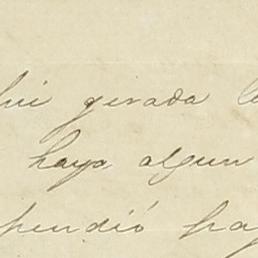 hui gerada l
haya algun
pendió pa